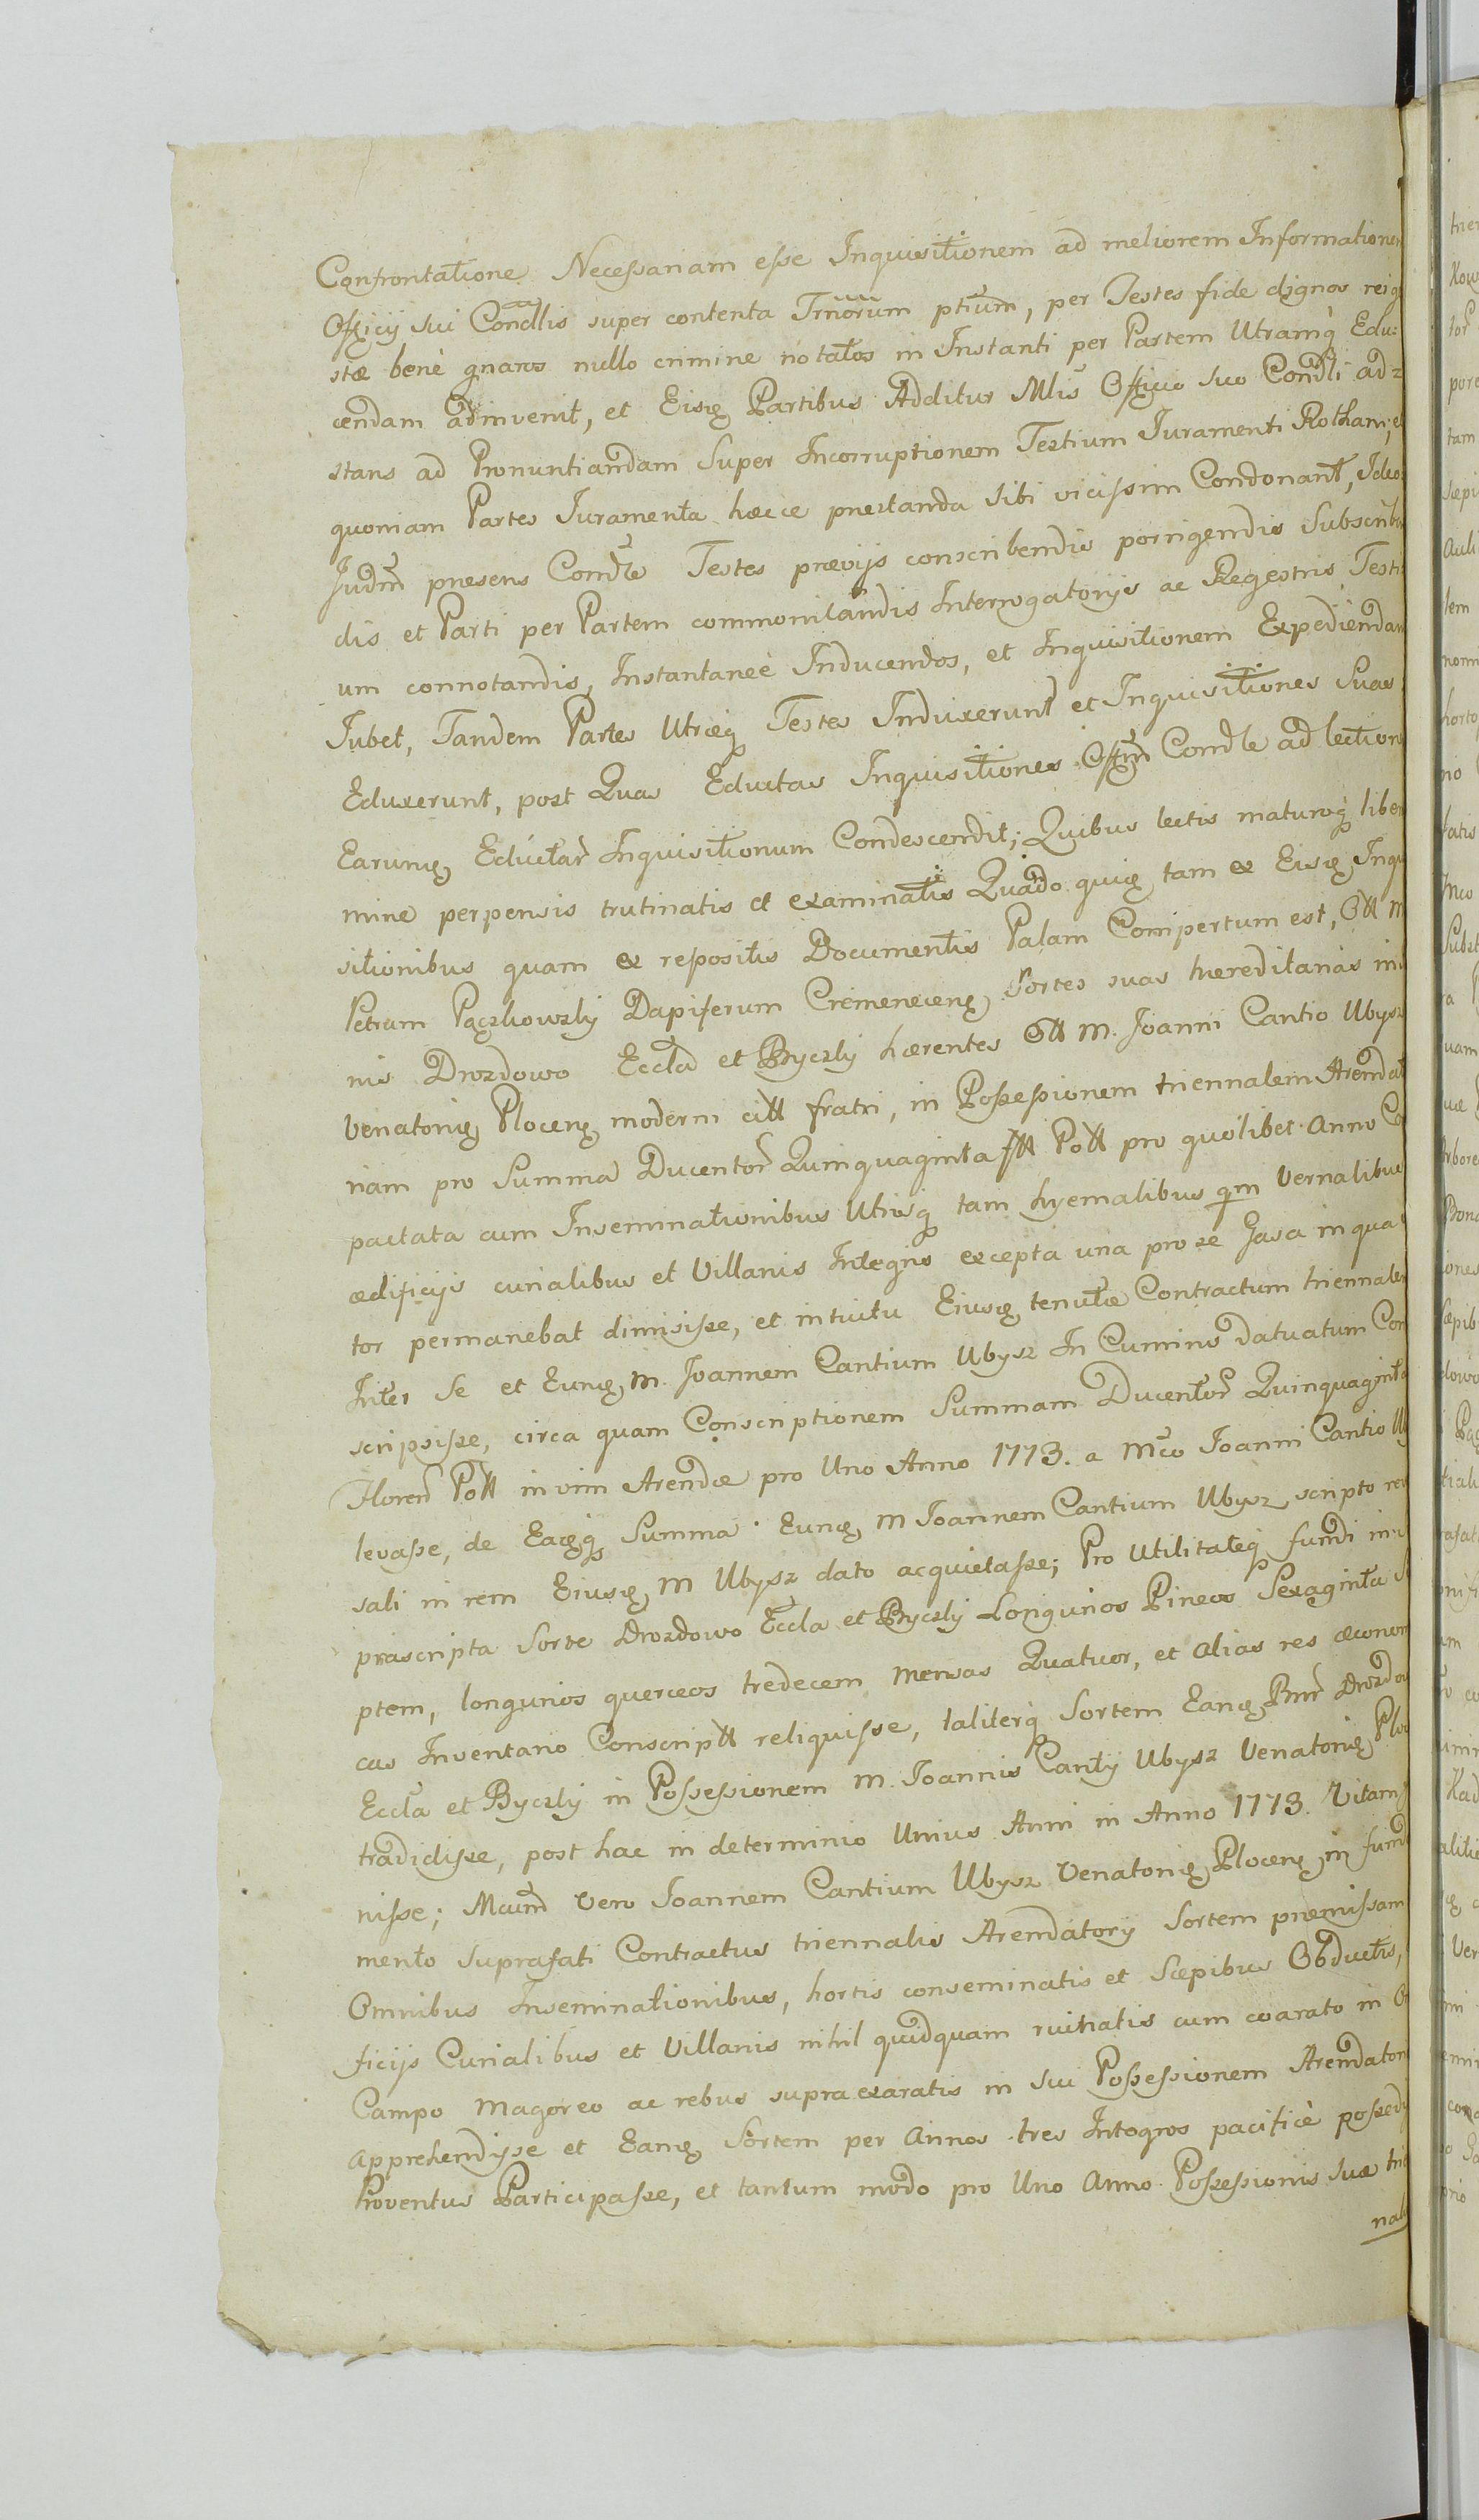 Confrontatione Necessariam esse Inquisitionem ad meliorem Informationem
Officij sui Condlis super contenta Trnorum ptium, per Testes fide dignos rei ge
stæ benè gnaros nullo crimine notatos in Instanti per Partem Utramq Edu:
cendam adinvenit, et Eisq Partibus Additur Mlis Officio suo Condli ad=
stans ad Pronuntiandam super Incorruptionem Testium Juramenti Rotham; et
quoniam Partes Juramenta hæcce præstanda sibi vicissim Condonant, Ideo
Judm præsens Condle Testes prævijs conscribendis porrigendis Subscriben
dis et Parti per Partem communicandis Interrogatorijs ac Regestris Testi
um connotandis, Instantaneè Inducendos, et Inquisitionem Expediendam
Jubet, Tandem Partes Utræq Testes Induxerunt et Inquisitiones Suas
Eduxerunt, post Quas Eductas Inquisitiones Offm Condle ad lection
Earunq Eductar Inquisitionum Condescendit; Quibus lectis maturoq liber
mine perpensis trutinatis et examinatis Quando quiq tam ex Eisq Inqui
sitionibus quam ex repositis Documentis Palam Compertum est, Gll M
Petrum Pączkowsky Dapiferum Cremenecenq Sortes suas hæreditarias in
nis Drozdowo Eccla et Byczky hærentes Gll M. Joanni Cantio Ubysz
Venatoriq Plocenq moderni citt fratri, in Possessionem triennalem Arendat
riam pro Summa Ducentor Quinquaginta fll Poll pro quolibet Anno Co
pactata cum Inseminationibus Utrisq tam hyemalibus qm Vernalibus
ædificijs curialibus et Villanis Integris excepta una pro se Jasa in qua
tor permanebat dimisisse, et intuitu Eiusq tenutæ Contractum triennalem
Inter Se et Eunq M. Joannem Cantium Ubysz In Cumino datuatum Con
scripsisse, circa quam Conscriptionem Summam Ducentor Quinquaginta
Floren Poll in vim Arendæ pro Uno Anno 1773. a Mco Joanni Cantio Uby
levasse, de Eaqq Summa Eunq M Joannem Cantium Ubysz scripto rever
sali in rem Eiusq M Ubysz dato acquietasse; Pro Utilitateq fundi in
præscripta Sorte Drozdowo Eccla et Byczky Longurios Pineos Sexaginta Se
ptem, longurios querceos tredecem Mensas Quatuor, et alias res œconom
cas Inventario Conscriptt reliquisse, taliterq Sortem Eanq Bnr Drozdow
Eccla et Byczky in Possessionem M. Joannis Cantij Ubysz Venatoriq Ploc
tradidisse, post hac in determinio Unius Anni in Anno 1773. Vitam
nisse; Mcum Vero Joannem Cantium Ubysz Venatoriq Plocenq in funda
mento suprafati Contractus triennalis Arendatorij Sortem præmissam
Omnibus Inseminationibus, hortis conseminatis et Sæpibus Obductis,
ficijs Curialibus et Villanis nihil quidquam ruinatis cum coarato in
Campo Magoreo ac rebus supra exaratis in sui Possessionem Arendatori
apprehendisse et Eanq Sortem per Annos tres Integros pacificè possedi
Proventus Participasse, et tantum modo pro Uno Anno Possessionis suæ trie
nali